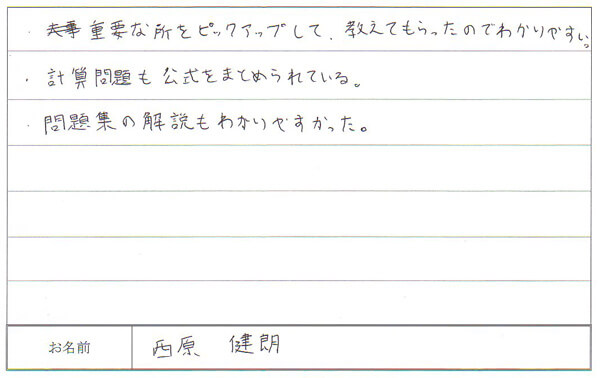 ・重要な所をピックアップして、教えてもらったのでわかりやすい。
・計算問題も公式をまとめられている。
・問題集の解説もわかりやすかった。
お名前 西原 健朗